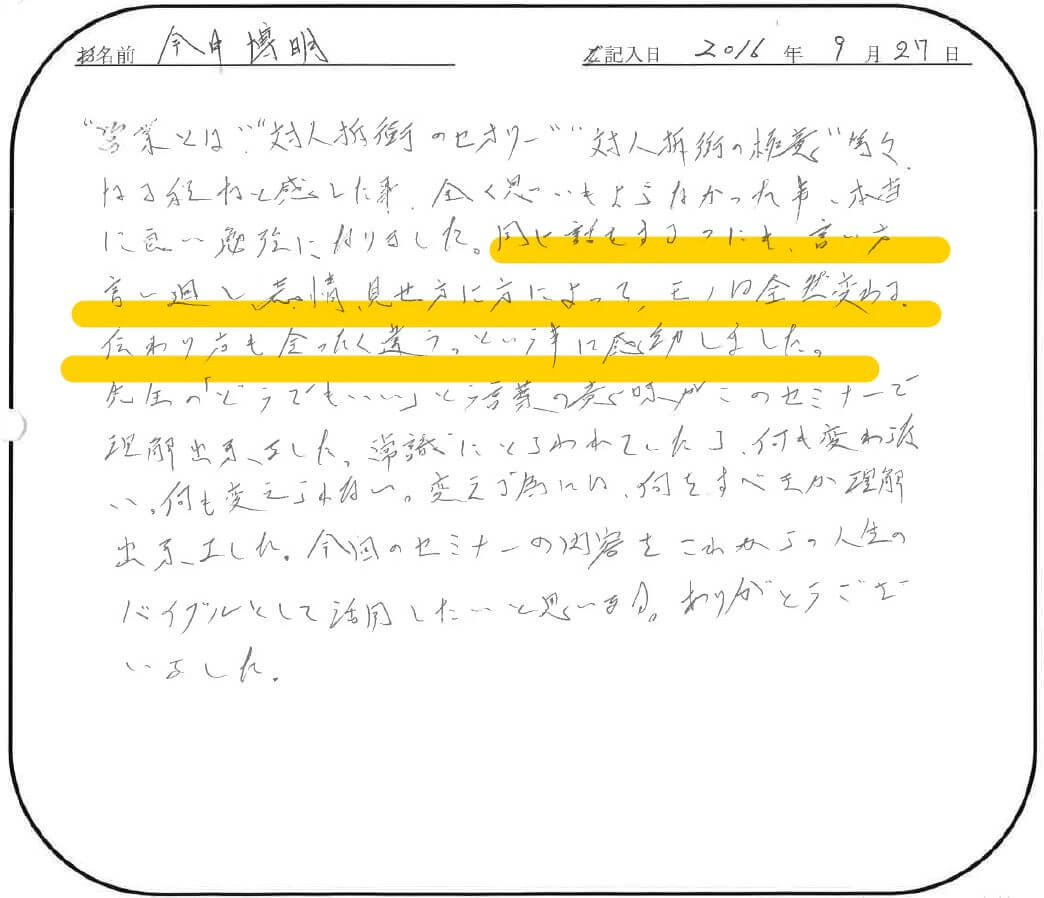 お名前 今井 博明 ご記入日 2016 年 9 月 27 日
"営業とは" "対人折衝のセオリー" "対人折衝の極意" 等々、
なる程ねと感じした事、全く思いもよらなかった事、本当
に良い勉強になりました。同じ話をするつにも、言い方
言い廻し、表情、見せ方に方によって、モノは全然変わる。
伝わり方も全ったく違う。という事に感動しました。
先生の「どうでもいい」と言葉の意味がこのセミナーで
理解出来ました。常識にとらわれていたら、何も変わら
い。何も変えられない。変える為には、何をすべきか理解
出来ました。今回のセミナーの内容をこれからの人生の
バイブルとして活用したいと思います。ありがとうござ
いました。